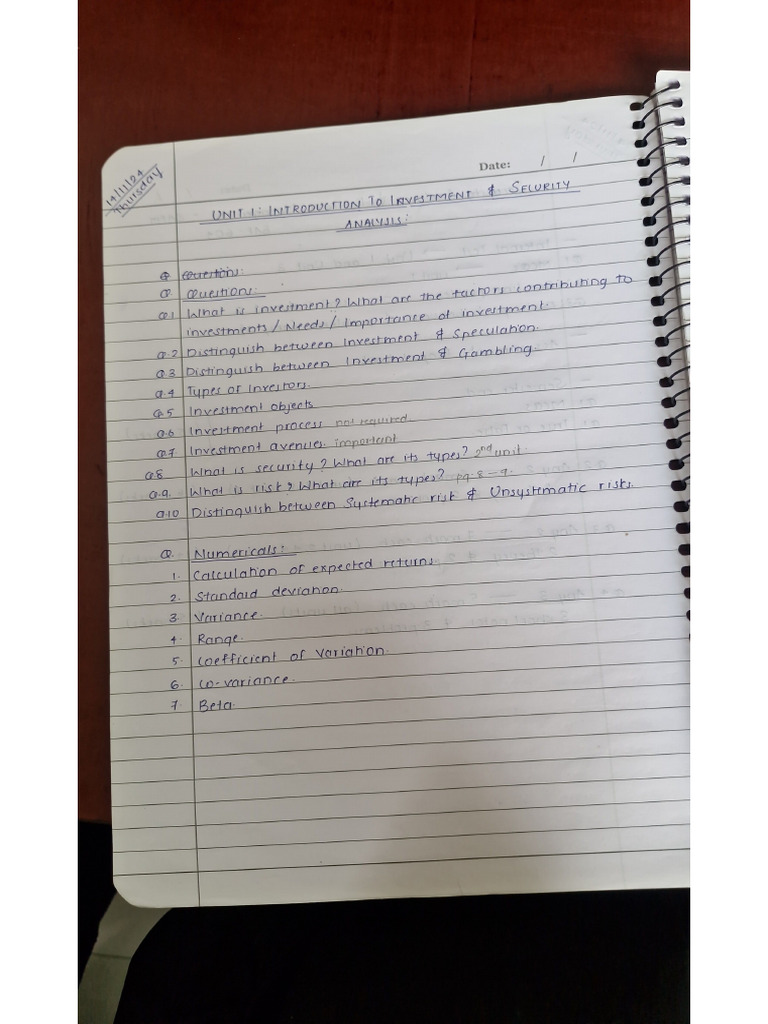 14/11/24
Thursday
Date: / /
UNIT 1: INTRODUCTION TO INVESTMENT & SECURITY
ANALYSIS:
Q Questions:
Q. Questions:
Q.1 What is investment? What are the factors contributing to
investments / Needs / Importance of investment.
Q.2 Distinguish between Investment & Speculation.
Q.3 Distinguish between Investment & Gambling.
Q.4 Types of Investors.
Q.5 Investment objects
Q.6 Investment process not required
Q.7 Investment avenues. important
Q.8 What is security? What are its types? 2nd unit.
Q.9. What is risk? What are its types? pg. 8-9.
Q.10 Distinguish between Systematic risk & Unsystematic risks.
Q. Numericals:
1. Calculation of expected returns.
2. Standard deviation.
3. Variance.
4. Range.
5. Coefficient of variation.
6. Co-variance.
7. Beta.